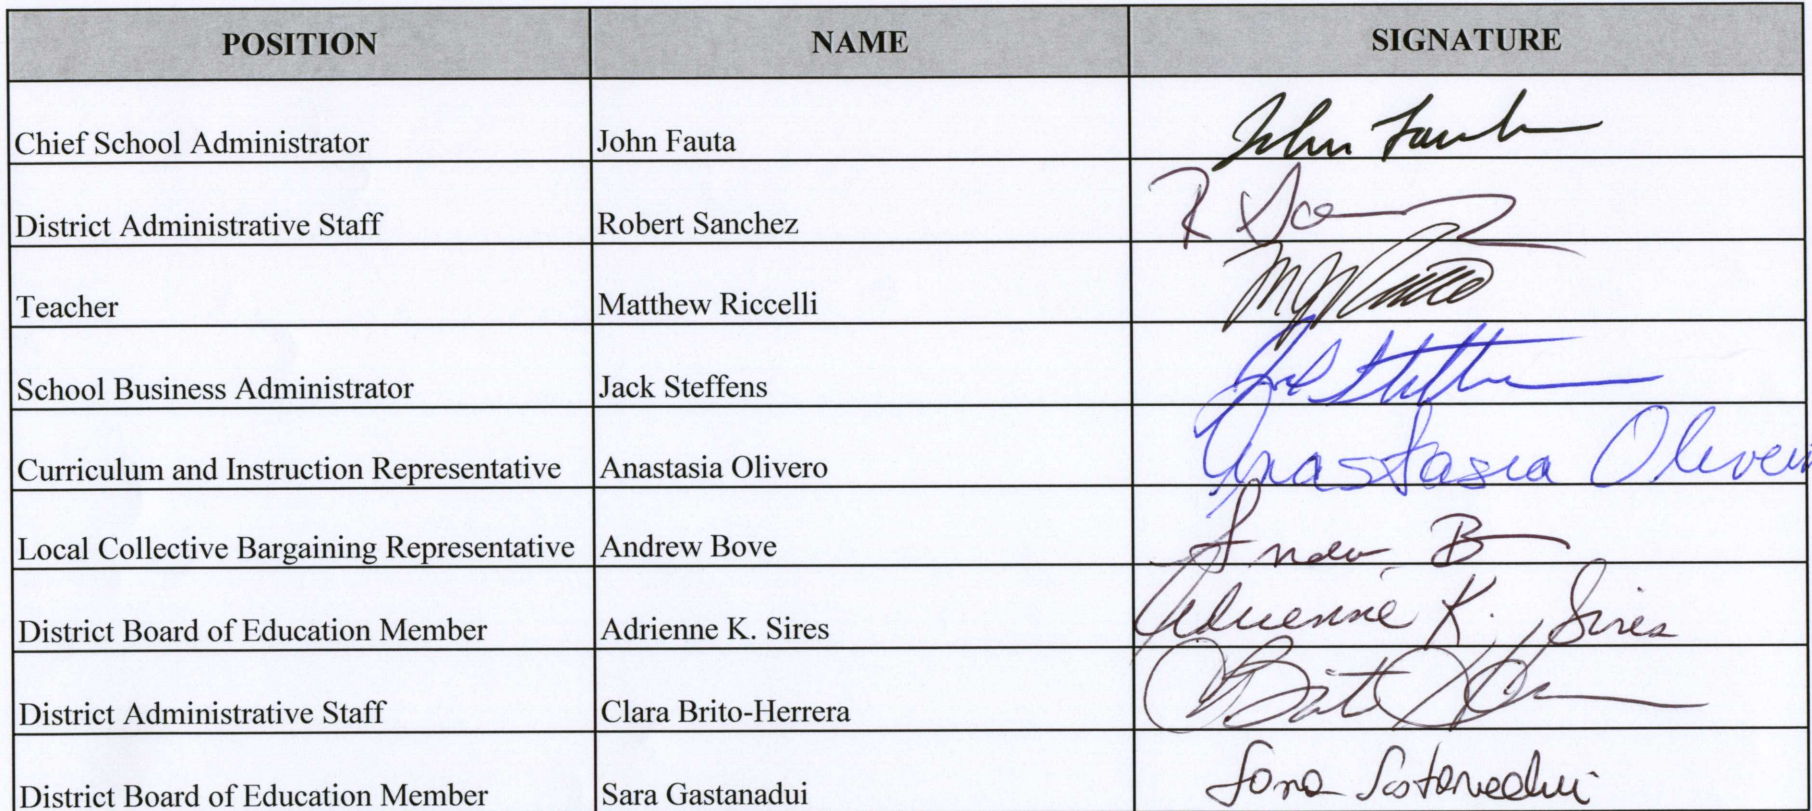 POSITION NAME SIGNATURE
Chief School Administrator John Fauta John Fauta
District Administrative Staff Robert Sanchez R
Teacher Matthew Riccelli
School Business Administrator Jack Steffens
Curriculum and Instruction Representative Anastasia Olivero Anastasia Olivero
Local Collective Bargaining Representative Andrew Bove Andrew B
District Board of Education Member Adrienne K. Sires Adrienne K. Sires
District Administrative Staff Clara Brito-Herrera
District Board of Education Member Sara Gastanadui Sara Gastanadui